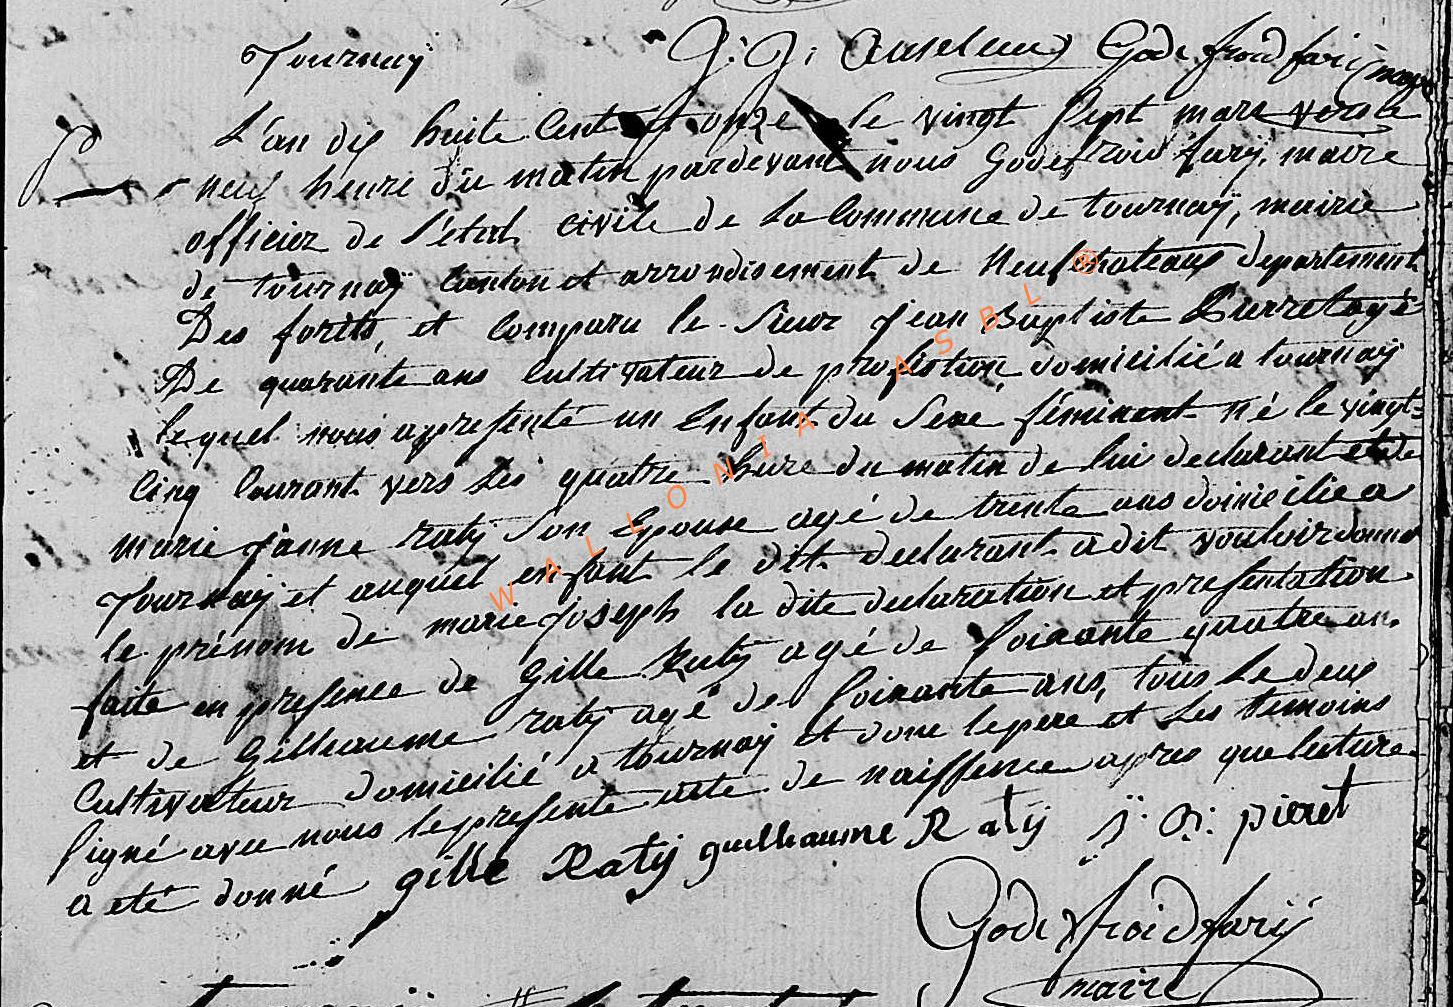 J: J: Anselme Godefroid farÿ maire
Tournaÿ
L'an dix huite Cent et onze le vingt sept mars vers le
neuf heure du matin pardevant nous Godefroid farÿ, maire
officier de l'état civile de La Commune de tournaÿ, mairie
de tournaÿ Canton et arrondisement de Neufchateaux departement
Des forêts, et Comparu le Sieur jean Baptiste Pierret agé
De quarante ans Cultivateur de profession domicilié a tournaÿ
lequel nous a presenté un Enfant du Sexe féminent né le vingt=
Cinq Courant vers Les quatre hure du matin de lui declarant et de
marie janne ratÿ Son Epouse agé de trente ans domicilie a
Tournaÿ et auquel enfant le dit declarant a dit vouloir donné
le prénom de marie joseph la dite declaration et presentation
faite en presence de Gille Ratÿ agé de soixante quatre an
et de Gilleaume ratÿ agé de Soixante ans, tous Le deux
Cultivateur domicilié a tournaÿ et donc le pere et Les temoins
signé avec nous le presente acte de naissence apres que lecture
a eté donné gille Ratÿ guilleaume Ratÿ j: B: pieret
Godefroid farÿ
maire
WALLONIA ASBL ®